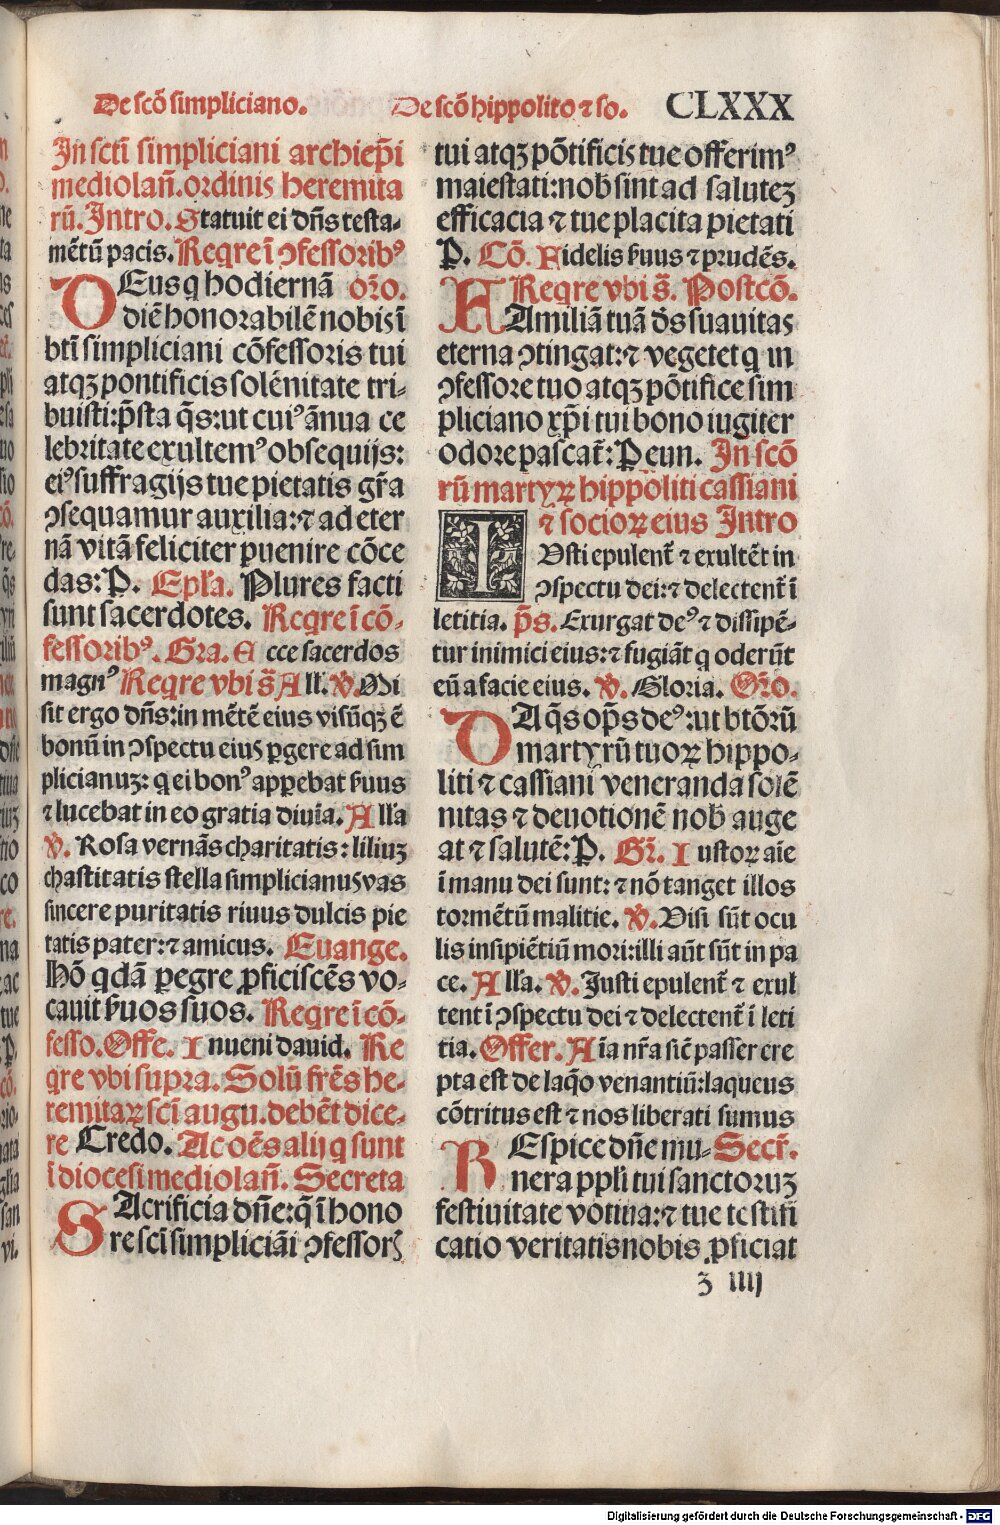 De scō simpliciano. De scō hippolito ⁊ so. CLXXX
In scti simpliciani archiep̄i
mediolan̄. ordinis heremita
rū. Intro. Statuit ei dn̄s testa-
mētū pacis. Reqre ī ↄfessoribꝰ
DEus q hodiernā or̄o.
diē honorabilē nobis ī
bt̄i simpliciani cōfessoris tui
atqꝫ pontificis solēnitate tri-
buisti: p̄sta q̄s: ut cuiꝰ ānua ce
lebritate exultemꝰ obsequijs:
eiꝰ suffragijs tue pietatis gr̄a
ↄsequamur auxilia: ⁊ ad eter
nā vitā feliciter ꝑuenire cōce
das: P. Epl̄a. Plures facti
sunt sacerdotes. Reqre ī cō-
fessoribꝰ. Gra. Ecce sacerdos
magnꝰ Reqre vbi s̄ All. ℣. Mi
sit ergo dn̄s: in mētē eius visūqꝫ ē
bonū in ↄspectu eius ꝑgere ad sim
plicianuꝫ: q ei bonꝰ apꝑebat ẜuus
⁊ lucebat in eo gratia diuīa. All'a
℣. Rosa vernās charitatis: liliuꝫ
chastitatis stella simplicianus vas
sincere puritatis riuus dulcis pie
tatis pater: ⁊ amicus. Euange.
Hō qdā ꝑegre ꝓficiscēs vo-
cauit ẜuos suos. Reqre ī cō-
fesso. Offe. Inueni dauid. Re
qre vbi supra. Solū frēs he-
remitaꝝ sci augu. debēt dice-
re Credo. Ac oēs alij q sunt
ī diocesi mediolan̄. Secreta
SAcrificia dn̄e: q̄ ī hono
re sci simpliciāi ↄfessorꝭ
tui atqꝫ pōtificis tue offerimꝰ
maiestati: nob̄ sint ad saluteꝫ
efficacia ⁊ tue placita pietati
P. Cō. Fidelis ẜuus ⁊ prudēs.
Reqre vbi s̄. Postcō.
FAmiliā tuā d̄s suauitas
eterna ↄtingat: ⁊ vegetet q in
ↄfessore tuo atqꝫ pōtifice sim
pliciano xp̄i tui bono iugiter
odore pascat̄: P eun. In scō
rū martyꝝ hippoliti cassiani
⁊ socioꝝ eius Intro
IVsti epulent̄ ⁊ exultēt in
ↄspectu dei: ⁊ delectent̄ ī
letitia. p̄s. Exurgat deꝰ ⁊ dissipē-
tur inimici eius: ⁊ fugiāt q oderūt
eū a facie eius. ℣. Gloria. Or̄o.
DA q̄s op̄s deꝰ: ut btōrū
martyrū tuoꝝ hippo-
liti ⁊ cassiani veneranda solē
nitas ⁊ deuotionē nob̄ auge
at ⁊ salutē: P. Gr̄. Iustoꝝ aīe
ī manu dei sunt: ⁊ nō tanget illos
tormētū malitie. ℣. Visi sūt ocu
lis insipiētiū mori: illi aūt sūt in pa
ce. All'a. ℣. Justi epulent̄ ⁊ exul
tent ī ↄspectu dei ⁊ delectent̄ ī leti
tia. Offer. Aīa nr̄a sic̄ passer ere
pta est de laq̄o venantiū: laqueus
cōtritus est ⁊ nos liberati sumus
REspice dn̄e mu- Secr̄.
nera ppl̄i tui sanctoruꝫ
festiuitate votiua: ⁊ tue testifi
catio veritatis nobis ꝓficiat
ꝫ iiij
Digitalisierung gefördert durch die Deutsche Forschungsgemeinschaft - DFG